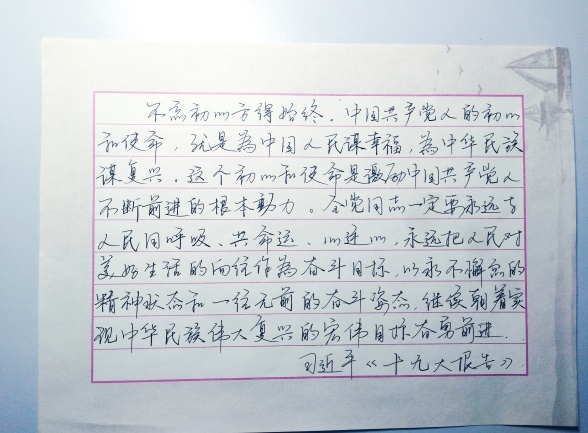 不忘初心方得始终。中国共产党人的初心
和使命，就是為中国人民谋幸福，為中华民族
谋复兴。这个初心和使命是激励中国共产党人
不断前进的根本动力。全党同志一定要永远与
人民同呼吸、共命运、心连心，永远把人民对
美好生活的向往作為奋斗目标，以永不懈怠的
精神状态和一往无前的奋斗姿态，继续朝着实
现中华民族伟大复兴的宏伟目标奋勇前进.
习近平《十九大报告》.